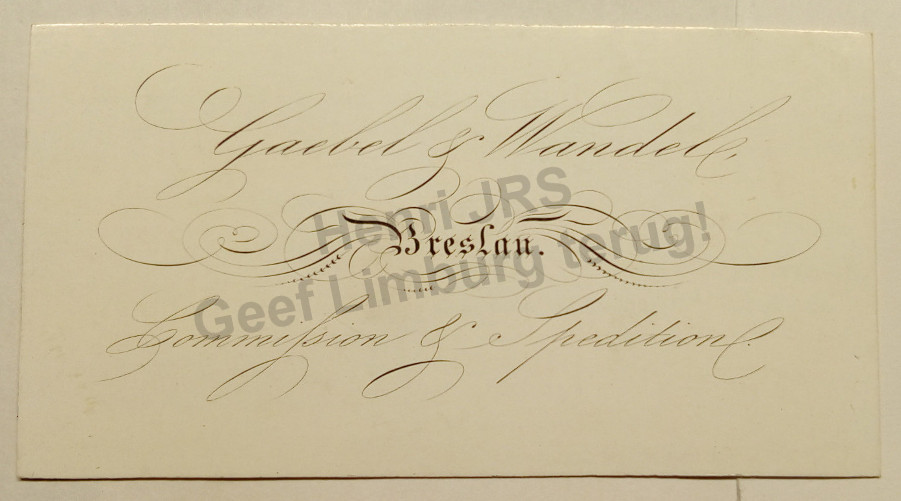 Gaebel & Wandel,
Henri JRS
Breslau.
Geef Limburg terug!
Commiſsion & Spedition.